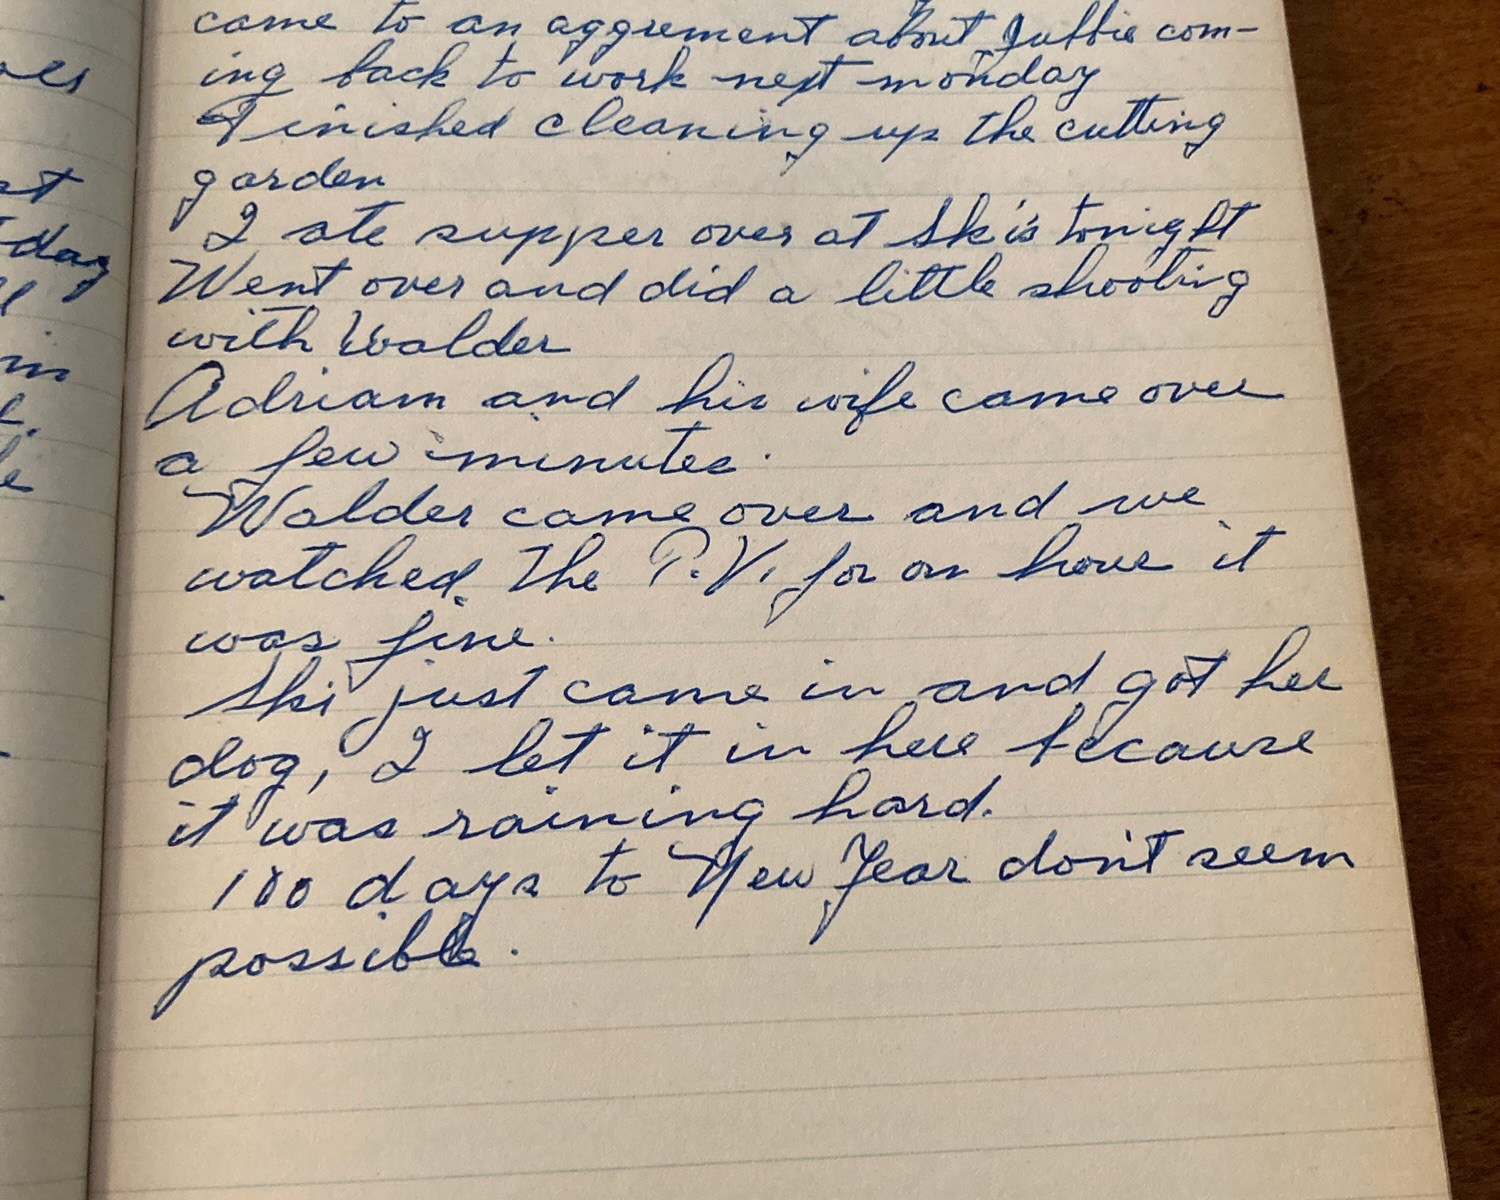 came to an aggrement about Jubbie com-
ing back to work next monday
Finished cleaning up the cutting
garden
I ate supper over at Ski's tonight
Went over and did a little shooting
with Walder
Adriam and his wife came over
a few minutes.
Walder came over and we
watched the T.V. for an hour it
was fine.
Ski just came in and got her
dog, I let it in here because
it was raining hard.
100 days to New Year don't seem
possible.
day